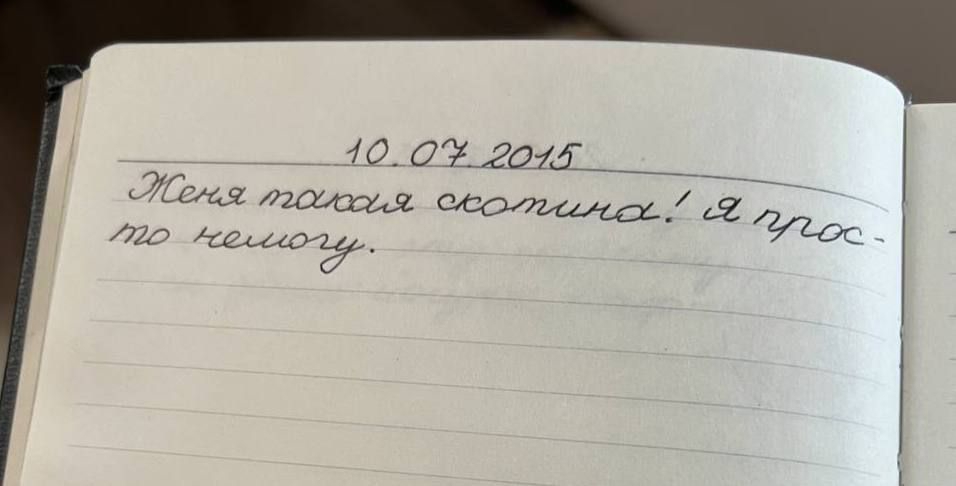 10.07.2015
Женя такая скотина! Я прос-
то немогу.